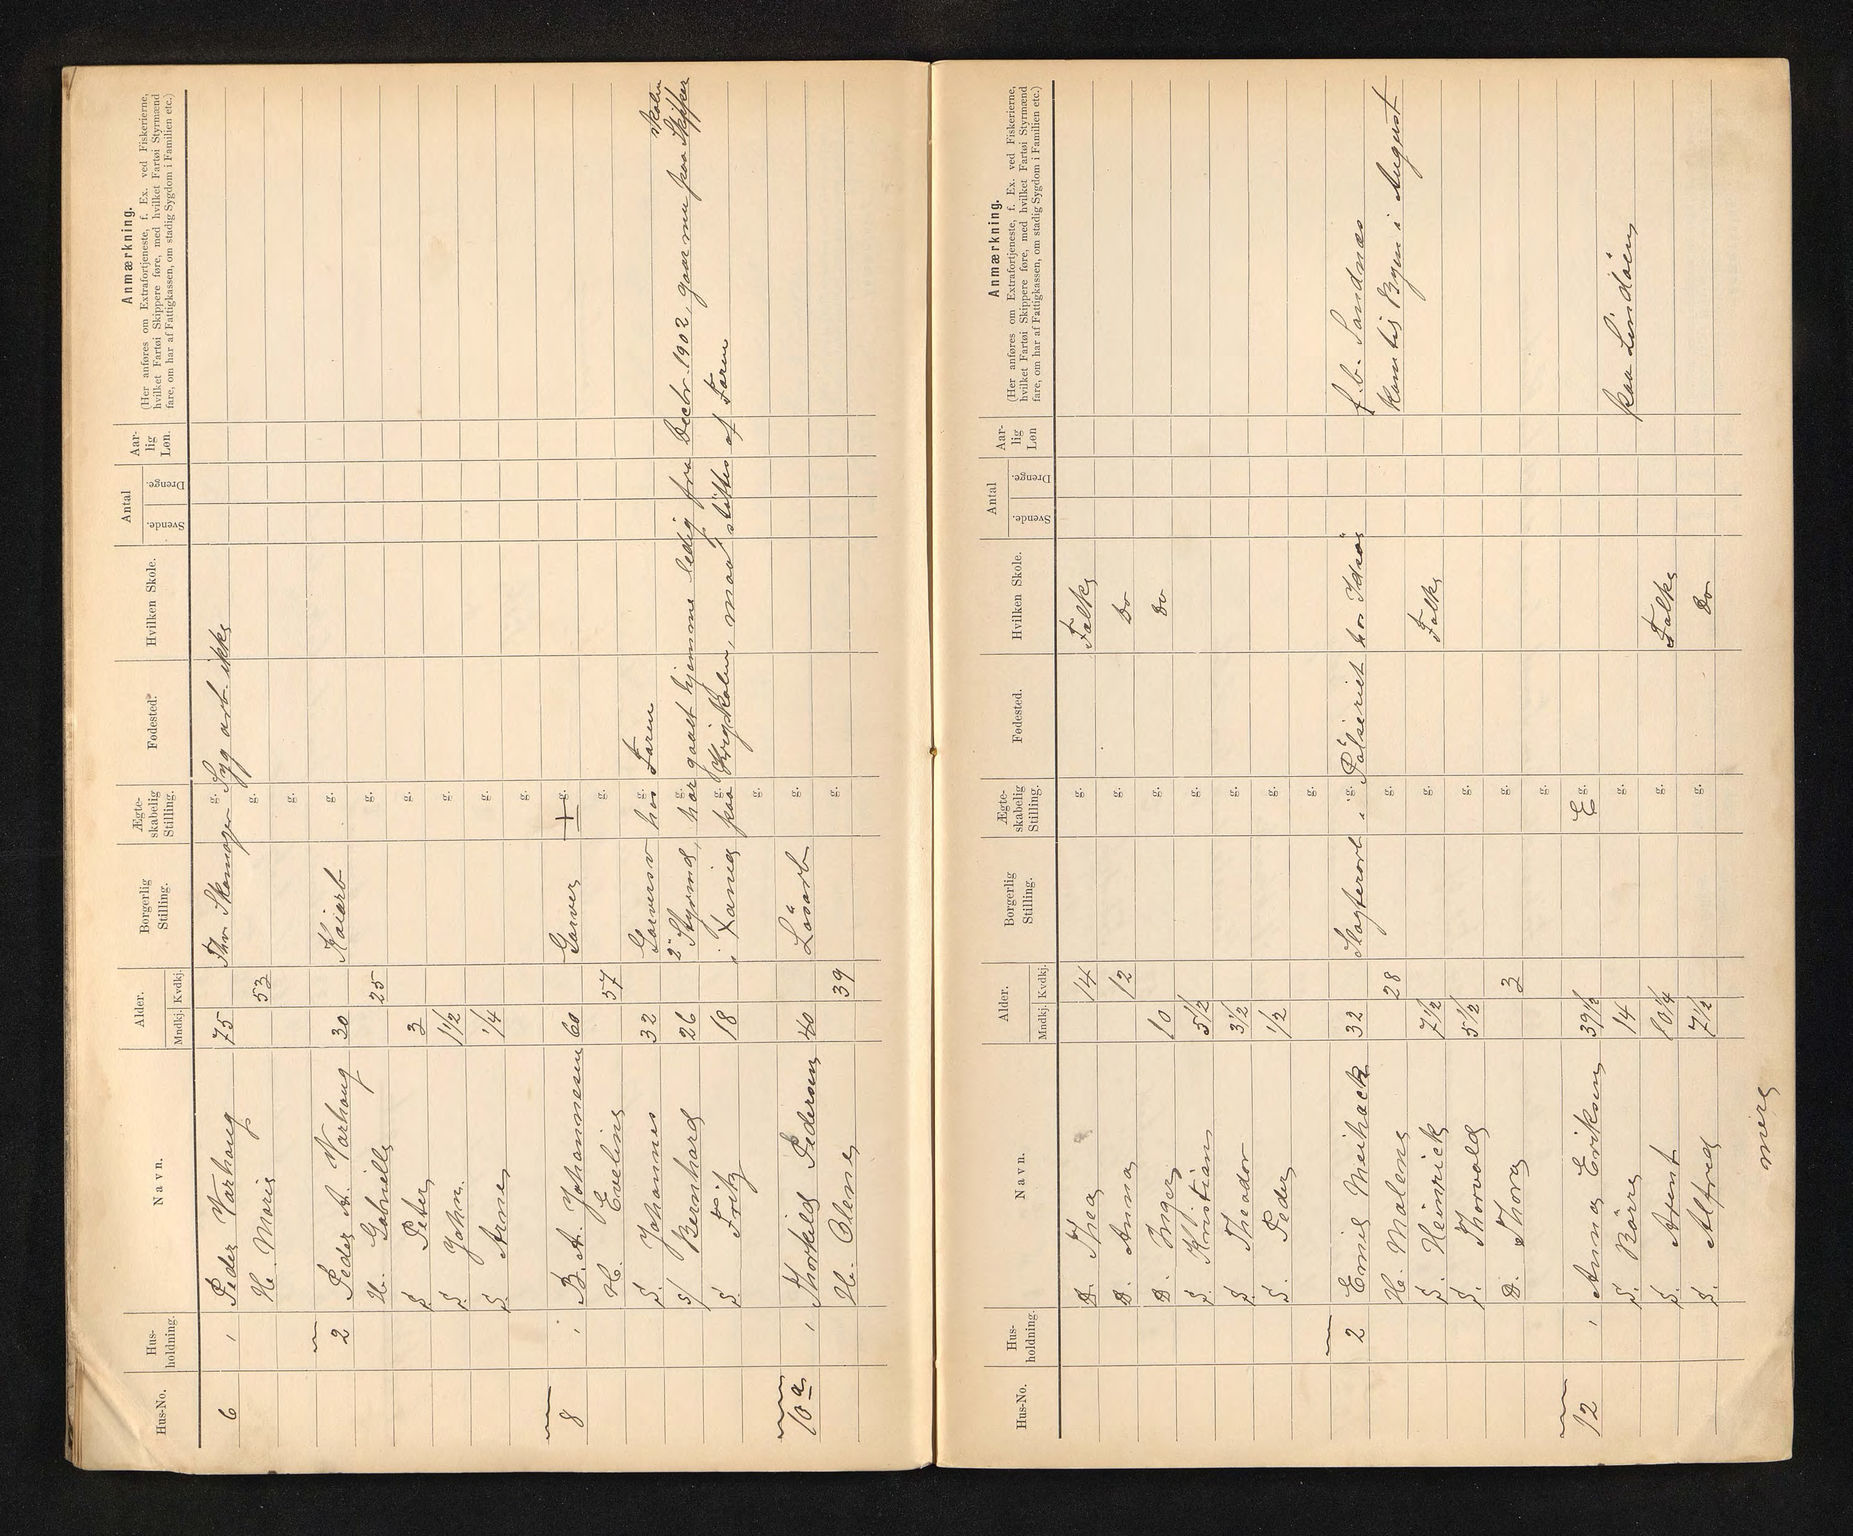 Hus-No.
Hus-
holdning.
Navn.
Alder.
Mndkj.
Kvdkj.
Borgerlig
Stilling.
Ægte-
skabelig
Stilling.
Fødested.
Hvilken Skole.
Antal
Svende.
Drenge.
Aar-
lig
Løn.
Anmærkning.
(Her anføres om Extrafortjeneste, f. Ex. ved Fiskerierne,
hvilket Fartøi Skippere føre, med hvilket Fartøi Styrmænd
fare, om har af Fattigkassen, om stadig Sygdom i Familien etc.)
6 1 Peder Varhaug 75 Skomager g. Syg arb. ikke
H. Marie 53 g.
g.
2 Peder A. Varhaug 30 Kaiarb g.
H. Gabrielle 25 g.
S. Peter 3 g.
S. John. 1 1/2 g.
S. Arne 1/4 g.
g.
8 1 B. A. Johannesen 60 Garver g.
H. Eveline 57 g.
S. Johannes 32 Garversv g. hos Faren
S/ Bernhard 26 2 Styrmd, g. har gaaet hjemme ledig fra Decbr. 1902, gaar nu paa Skipper
skolen
S. Fritz 18 g. paa Krigskolen, maa støttes af Faren
g.
10a 1 Thorkild Pedersen 40 Løsarb g.
H. Olene 39 g.
Hus-No.
Hus-
holdning.
Navn.
Alder.
Mndkj.
Kvdkj.
Borgerlig
Stilling.
Ægte-
skabelig
Stilling.
Fødested.
Hvilken Skole.
Antal
Svende.
Drenge.
Aar-
lig
Løn
Anmærkning.
(Her anføres om Extrafortjeneste, f. Ex. ved Fiskerierne,
hvilket Fartøi Skippere føre, med hvilket Fartøi Styrmænd
fare, om har af Fattigkassen, om stadig Sygdom i Familien etc.)
D. Thea 14 g. Folks
D. Anna 12 g. Do
D. Inger 10 g. Do
S. Kristian 5 1/2 g.
S. Theodor 3 1/2 g.
S. Peder 1/2 g.
g.
2 Emil Meihack 32 Slagterarb g. i Pølseriet hos Idsøe f. b. Sandnæs
H. Malene 28 g. kom til Byen i August
S. Heinrick 7 1/2 g. Folks
S. Thorvald 5 1/2 g.
D. Thora 3 g.
g.
12 1 Anna Eriksen 39 1/2 E g.
S. Børre 14 g. paa Lindøen
S. Arent 10 1/4 g. Folks
S. Alfred 7 1/2 g. Do
mere